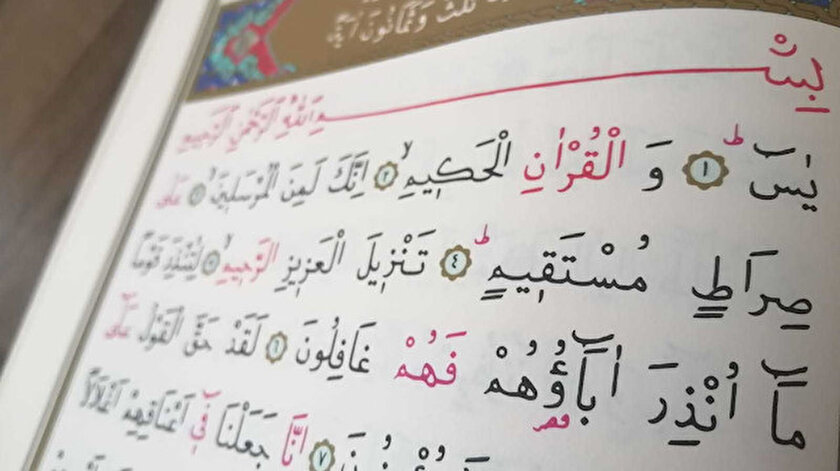 ثَلَاثٌ وَثَمَانُونَ اٰيَةً
بِسْمِ اللّٰهِ الرَّحْمٰنِ الرَّحِيمِ
يٰسٓ ۚ ﴿١﴾ وَ الْقُرْاٰنِ الْحَكِيمِ ۙ ﴿٢﴾ اِنَّكَ لَمِنَ الْمُرْسَلِينَ ۙ ﴿٣﴾ عَلٰى
صِرَاطٍ مُسْتَقِيمٍ ۜ ﴿٤﴾ تَنْزِيلَ الْعَزِيزِ الرَّحِيمِ ۙ ﴿٥﴾ لِتُنْذِرَ قَوْمًا
مَٓا اُنْذِرَ اٰبَٓاؤُهُمْ فَهُمْ غَافِلُونَ ﴿٦﴾ لَقَدْ حَقَّ الْقَوْلُ عَلٰٓى
﴿٧﴾ اِنَّا جَعَلْنَا فِٓي اَعْنَاقِهِمْ اَغْلَالًا